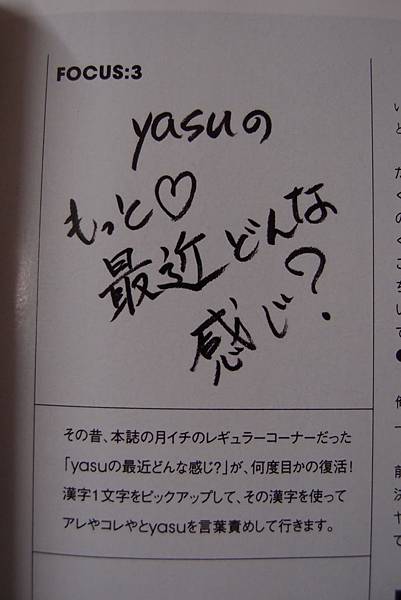 FOCUS:3
yasuの
もっと♡
最近どんな
感じ?
その昔、本誌の月イチのレギュラーコーナーだった
「yasuの最近どんな感じ?」が、何度目かの復活!
漢字1文字をピックアップして、その漢字を使って
アレやコレやとyasuを言葉責めして行きます。